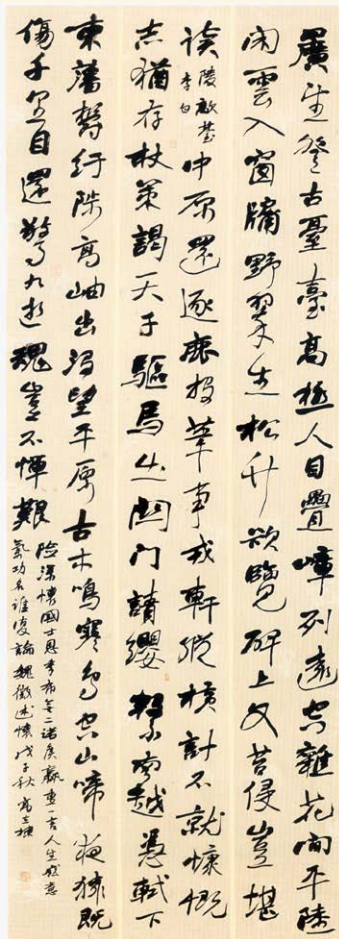 曠望登古臺臺高極人目疊嶂列遠空雜花間平陸
閑雲入窗牖野翠生松竹欲覽碑上文苔侵豈堪
讀 陵歊臺 李白 中原還逐鹿投筆事戎軒縱橫計不就慷慨
志猶存杖策謁天子驅馬出關門請纓繫南越憑軾下
東藩鬱紆陟高岫出沒望平原古木鳴寒鳥空山啼夜猿既
傷千里目還驚九逝魂豈不憚艱
險深懷國士恩季布無二諾侯嬴重一言人生感意
氣功名誰復論 魏徵述懷 戊子秋